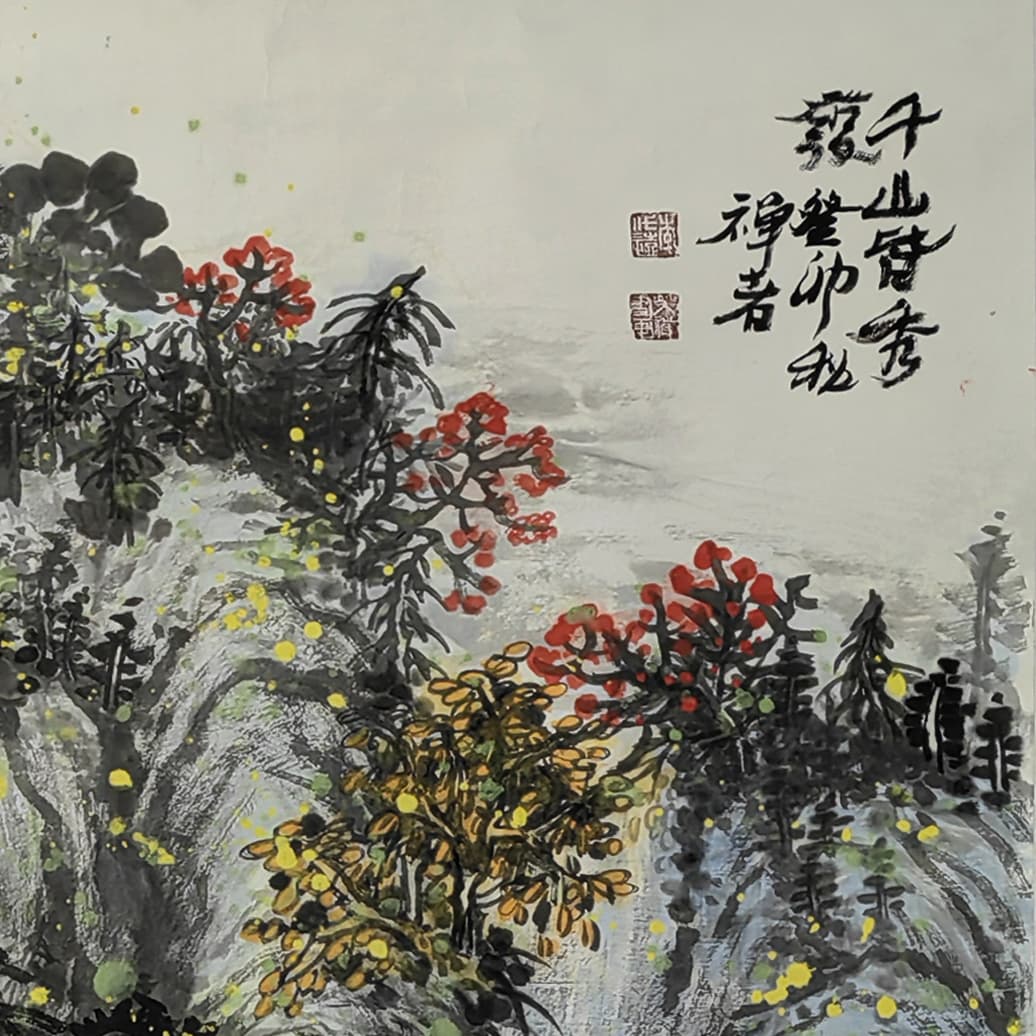 千山皆秀
發癸卯秋
禅者